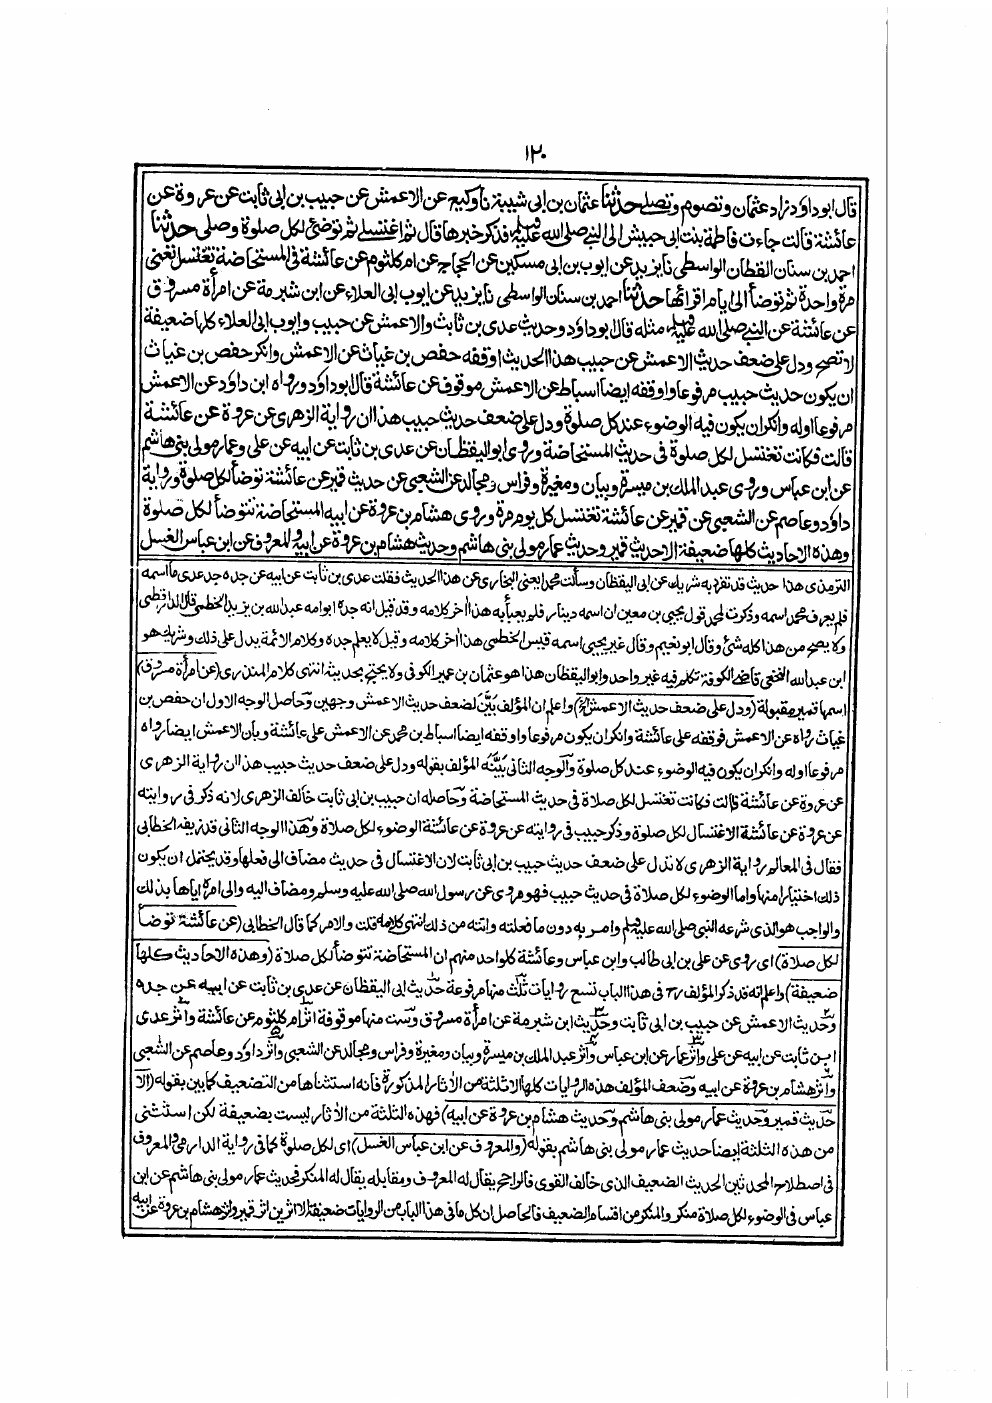 ١٢٠
قال ابوداود زاد عثمان وتصوم وتصلي حدثنا عثمان بن ابى شيبة نا وكيع عن الاعمش عن حبيب بن ابى ثابت عن عروة عن
عائشة قالت جاءت فاطمة بنت ابى حبيش الى النبي صلى الله عليه وسلم فذكر خبرها قال ثم اغتسلي ثم توضئ لكل صلوة وصلى حدثنا
احمد بن سنان القطان الواسطى نا يزيد عن ايوب بن ابى مسكين عن الحجاج عن ام كلثوم عن عائشة فى المستحاضة تغتسل تعنى
مرة واحدة ثم توضأ الى ايام اقرائها حدثنا احمد بن سنان الواسطى نا يزيد عن ايوب ابى العلاء عن ابن شبرمة عن امرأة مسروق
عن عائشة عن النبي صلى الله عليه وسلم مثله قال ابوداود وحديث عدى بن ثابت والاعمش عن حبيب وايوب ابى العلاء كلها ضعيفة
لا تصح ودل على ضعف حديث الاعمش عن حبيب هذا الحديث اوقفه حفص بن غياث عن الاعمش وانكر حفص بن غياث
ان يكون حديث حبيب مرفوعا واوقفه ايضا اسباط عن الاعمش موقوف عن عائشة قال ابوداود ورواه ابن داود عن الاعمش
مرفوعا اوله وانكر ان يكون فيه الوضوء عند كل صلوة ودل على ضعف حديث حبيب هذا ان رواية الزهرى عن عروة عن عائشة
قالت فكانت تغتسل لكل صلوة فى حديث المستحاضة وروى ابو اليقظان عن عدى بن ثابت عن ابيه عن على وعمار مولى بنى هاشم
عن ابن عباس وروى عبد الملك بن ميسرة وبيان ومغيرة وفراس ومجالد عن الشعبي عن حديث قمير عن عائشة توضأ لكل صلوة ورواية
داود وعاصم عن الشعبي عن قمير عن عائشة تغتسل كل يوم مرة وروى هشام بن عروة عن ابيه المستحاضة تتوضأ لكل صلوة
وهذه الاحاديث كلها ضعيفة الا حديث قمير وحديث عمار مولى بنى هاشم وحديث هشام بن عروة عن ابيه والمعروف عن ابن عباس الغسل
الترمذى هذا حديث قد تفرد به شريك عن ابى اليقظان وسألت محمدا يعنى البخارى عن هذا الحديث فقلت عدى بن ثابت عن ابيه عن جده جد عدى ما اسمه
فلم يعرف محمد اسمه وذكرت لمحمد قول يحيى بن معين ان اسمه دينار فلم يعبأ به هذا آخر كلامه وقد قيل انه جده ابو امه عبد الله بن يزيد الخطمى قال الدارقطنى
ولا يصح من هذا كله شئ وقال ابو نعيم وقال غير يحيى اسمه قيس الخطمى هذا آخر كلامه وقيل لا يعلم جده وكلام الائمة يدل على ذلك وشريك هو
ابن عبد الله النخعى قاضى الكوفة تكلم فيه غير واحد وابو اليقظان هذا هو عثمان بن عمير الكوفى ولا يحتج بحديثه انتهى كلام المنذرى (عن امرأة مسروق)
اسمها قمير مقبولة (ودل على ضعف حديث الاعمش الخ) واعلم ان المؤلف بيّن لضعف حديث الاعمش وجهين وحاصل الوجه الاول ان حفص بن
غياث رواه عن الاعمش فوقفه على عائشة وانكر ان يكون مرفوعا واوقفه ايضا اسباط بن محمد عن الاعمش على عائشة وبان الاعمش ايضا رواه
مرفوعا اوله وانكر ان يكون فيه الوضوء عند كل صلوة والوجه الثانى بيّنه المؤلف بقوله ودل على ضعف حديث حبيب هذا ان رواية الزهرى
عن عروة عن عائشة قالت فكانت تغتسل لكل صلاة فى حديث المستحاضة وحاصله ان حبيب بن ابى ثابت خالف الزهرى لانه ذكر فى روايته
عن عروة عن عائشة الاغتسال لكل صلوة وذكر حبيب فى روايته عن عروة عن عائشة الوضوء لكل صلاة وهذا الوجه الثانى قد زيفه الخطابى
فقال فى المعالم رواية الزهرى لا تدل على ضعف حديث حبيب بن ابى ثابت لان الاغتسال فى حديث مضاف الى فعلها وقد يحتمل ان يكون
ذلك اختيارا منها واما الوضوء لكل صلاة فى حديث حبيب فهو مروى عن رسول الله صلى الله عليه وسلم ومضاف اليه والى امره اياها بذلك
والواجب هو الذى شرعه النبى صلى الله عليه وسلم وامر به دون ما فعلته واتته من ذلك انتهى كلامه قلت والامر كما قال الخطابى (عن عائشة توضأ
لكل صلاة) اى روى عن على بن ابى طالب وابن عباس وعائشة كل واحد منهم ان المستحاضة تتوضأ لكل صلاة (وهذه الاحاديث كلها
ضعيفة) واعلم انه قد ذكر المؤلف رح فى هذا الباب تسع روايات ثلث منها مرفوعة حديث ابى اليقظان عن عدى بن ثابت عن ابيه عن جده
وحديث الاعمش عن حبيب بن ابى ثابت وحديث ابن شبرمة عن امرأة مسروق وست منها موقوفة اثر ام كلثوم عن عائشة واثر عدى
ابن ثابت عن ابيه عن على واثر عمار عن ابن عباس واثر عبد الملك بن ميسرة وبيان ومغيرة وفراس ومجالد عن الشعبي واثر داود وعاصم عن الشعبي
واثر هشام بن عروة عن ابيه وضعف المؤلف هذه الروايات كلها الا ثلثة من الأثار المذكورة فانه استثناها من التضعيف كما بين بقوله (الا
حديث قمير وحديث عمار مولى بنى هاشم وحديث هشام بن عروة عن ابيه) فهذه الثلثة من الأثار ليست بضعيفة لكن استثنى
من هذه الثلثة ايضا حديث عمار مولى بنى هاشم بقوله (والمعروف عن ابن عباس الغسل) اى لكل صلوة كما فى رواية الدارمى والمعروف
فى اصطلاح المحدثين الحديث الضعيف الذى خالف القوى فالراجح يقال له المعروف ومقابله يقال له المنكر فحديث عمار مولى بنى هاشم عن ابن
عباس فى الوضوء لكل صلاة منكر والمنكر من اقسام الضعيف فالحاصل ان كل ما فى هذا الباب من الروايات ضعيفة الا اثرين اثر قمير واثر هشام بن عروة عن ابيه